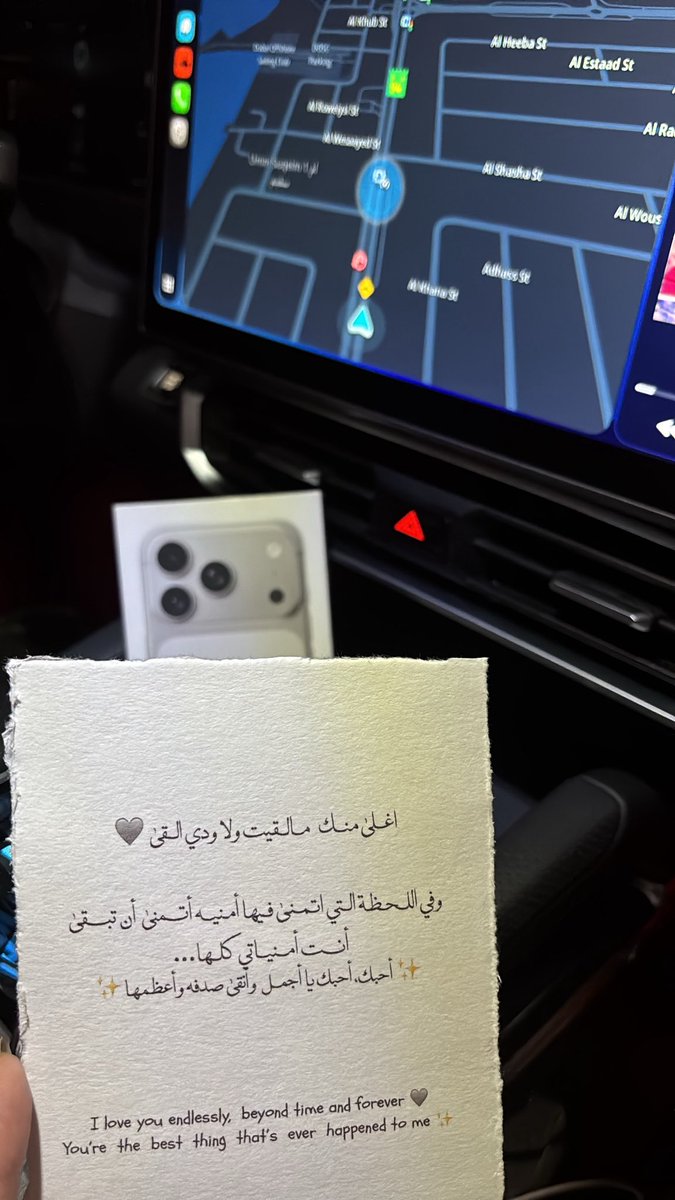 Al Khub St
Al Heeba St
Al Estaad St
Al Rowdya St
Al Shasha St
Al Wous
Adhass St
اغلىٰ منك مالقيت ولا ودي القىٰ 🩶
وفي اللحظة التي اتمنىٰ فيها أمنيه أتمنىٰ أن تبقىٰ
أنت أمنياتي كلها...
✨ أحبك، أحبك يا أجمل وأنقىٰ صدفه وأعظمها ✨
I love you endlessly, beyond time and forever 🩶
You're the best thing that's ever happened to me ✨